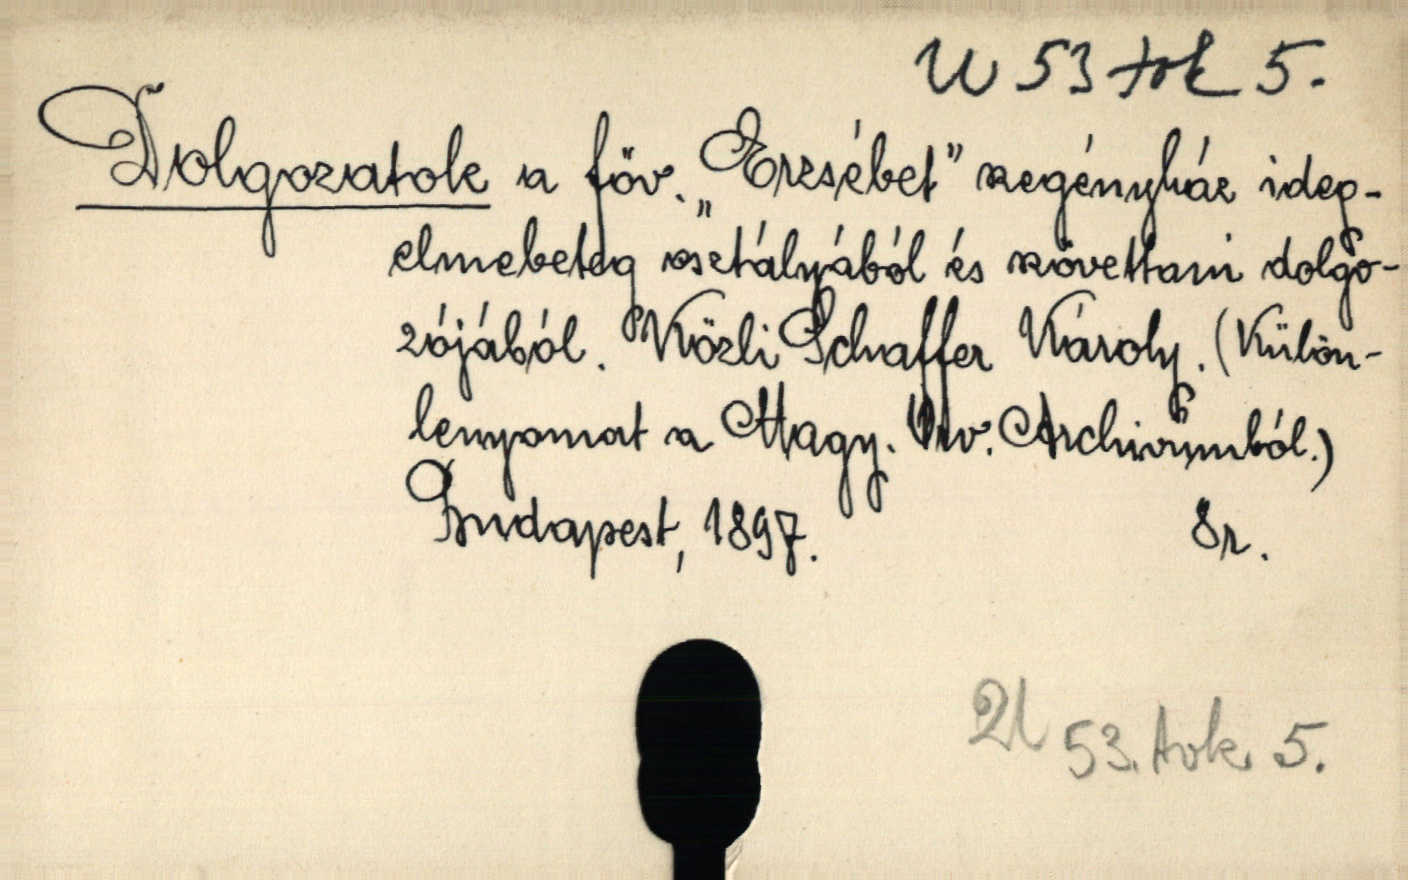 U 53 tok 5.
Dolgozatok a föv. „Erzsébet" szegényház ideg-
elmebeteg osztályából és szövettani dolgo-
zójából. Közli Schaffer Károly. (Külön-
lenyomat a Magy. Orv. Archivumból.)
Budapest, 1897. 8r.
U 53. tok 5.